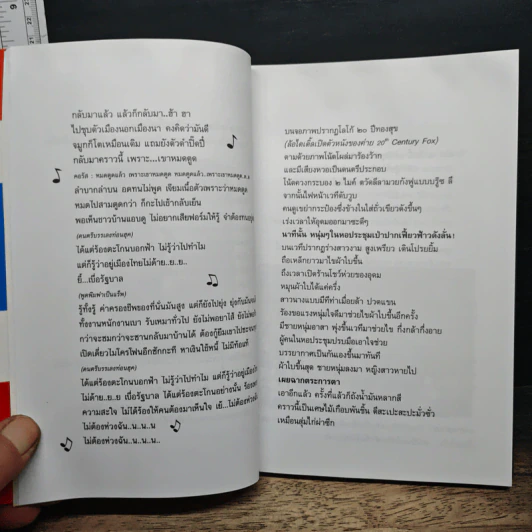 กลับมาแล้ว แล้วก็กลับมา..ฮ้า ฮา
ไปชุบตัวเมืองนอกเมืองนา คงคิดว่ามันดี
จมูกก็โตเหมือนเดิม แถมยังตัวดำปิ๊ดปี๋
กลับมาคราวนี้ เพราะ...เขาหมดดูด
คอรัส : หมดดูดแล้ว เพราะเขาหมดดูด หมดดูดแล้ว..เพราะเขาหมดดูด..ด..ด
ลำบากลำบน อดทนไม่พูด เจียมเนื้อตัวเพราะว่าหมดดูด
หมดไปสามดูดกว่า ก็กะไปเถ้ากลับเย็น
พอเห็นชาวบ้านแอบดู ไม่อยากเสียฟอร์มให้รู้ จำต้องทน
(ดนตรีบรรเลงท่อนสูด)
ได้แต่ร้องตะโกนบอกฟ้า ไม่รู้ว่าไปทำไม
แต่ก็รู้ว่าอยู่เมืองไทยไม่ด้าย..ย..ย..
ยี้...เบื่อรัฐบาล
(พูดพึมพำเป็นแร็พ)
รู้ทั้งรู้ ค่าครองชีพของที่นั่นมันสูง แต่ก็ยังไปยุ่ง ยุ่งกับมัน
ทั้งงานพนักงานเบา รับเหมาทั่วไป ยังไม่พอยาไส้ ยังไม่พอ
กว่าจะสมกว่าจะซานกลับมาบ้านได้ ต้องกู้ยืมเขาประจบ
เปิดเดี่ยวไมโครโฟนอีกซักกะที หาเงินใช้หนี้ ไม่มีท้อแท้
(ดนตรีบรรเลงท่อนสูด)
ได้แต่ร้องตะโกนบอกฟ้า ไม่รู้ว่าไปทำไม แต่ก็รู้ว่าอยู่เมือง
ไม่ด้าย..ย..ย เบื่อรัฐบาล ได้แต่ร้องตะโกนอย่างนั้น ร้อง
ความสะใจ ไม่ได้ร้องให้คนต้องมาเห็นใจ เย้...ไม่ต้องห่วง
ไม่ต้องห่วงฉัน..น..น..น
ไม่ต้องห่วงฉัน..น..น..
บนจอภาพปรากฏโลโก้ ๒๐ ปีทองสุข
(ล้อไตเติ้ลเปิดตัวหนังของค่าย 20th Century Fox)
ตามด้วยภาพโน้ตโผล่มาร้องว้าก
และมีเสียงหวายเป็นดนตรีประกอบ
โน้ตควงกระบอง ๒ ไมค์ ตวัดลีลามวยกังฟูแบบบรู๊ซ ลี
จากนั้นไฟหน้าเวทีดับวูบ
คนดูเขย่ากระป๋องซึ่งข้างในใส่ถั่วเขียวดังขึ้นๆ
เร่งเวลาให้อุดมออกมาซะดีๆ
นาทีนั้น หนุ่มๆในหอประชุมเป่าปากเฟี้ยวฟ้าวดังลั่น!
บนเวทีปรากฏร่างสาวงาม สูงเพรียว เดินโปรยยิ้ม
ถือเหล็กยาวมาไขผ้าใบขึ้น
ถึงเวลาเปิดร้านโชว์ห่วยของอุดม
หมุนผ้าใบได้แค่ครึ่ง
สาวนางแบบมีทีท่าเมื่อยล้า ปวดแขน
ร้องขอแรงหนุ่มใจดีมาช่วยไขผ้าใบขึ้นอีกครั้ง
มีชายหนุ่มอาสา พุ่งขึ้นเวทีมาช่วยไข กึ่งกล้ากึ่งอาย
ผู้คนในหอประชุมปรบมือเอาใจช่วย
บรรยากาศเป็นกันเองขึ้นมาทันที
ผ้าใบขึ้นสุด ชายหนุ่มลงมา หญิงสาวหายไป
เผยฉากตระการตา
เอาอีกแล้ว ครั้งที่แล้วก็ถังน้ำมันหลากสี
คราวนี้เป็นเศษไม้เกือบพันชิ้น ตีสะเปะสะปะมั่วซั่ว
เหมือนสุ่มไก่ผ่าซีก